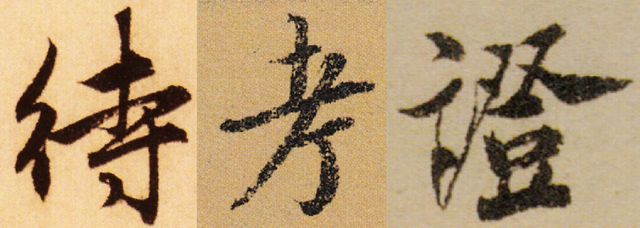 待考證